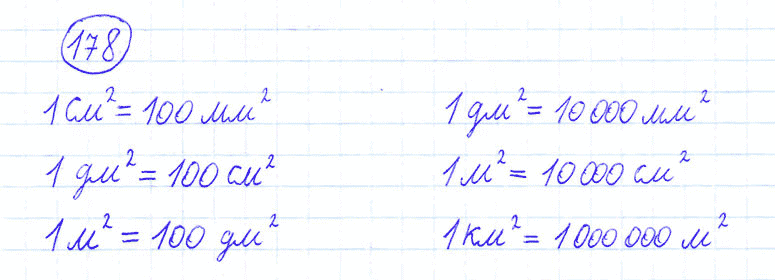 178
1 см² = 100 мм² 1 дм² = 10 000 мм²
1 дм² = 100 см² 1 м² = 10 000 см²
1 м² = 100 дм² 1 км² = 1 000 000 м²